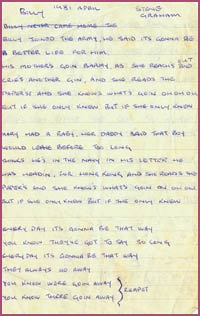 BILLY 1981 APRIL STEVE GRAHAM
BILLY NEVER CAME HOME
BILLY JOINED THE ARMY, HE SAID ITS GONNA BE
A BETTER LIFE FOR HIM,
HIS MOTHERS GOIN BARMY AS SHE REACHES OUT
CRIES ANOTHER GIN, AND SHE READS THE
PAPERS AND SHE KNOWS WHAT'S GOIN ON OH OH
BUT IF SHE ONLY KNEW BUT IF SHE ONLY KNEW
MARY HAD A BABY, HER DADDY SAID THAT BOY
WOULD LEAVE BEFORE TOO LONG
HE'S IN THE NAVY IN HIS LETTER HE
WAS HEADIN, FOR HONG KONG, AND SHE READS THE
PAPERS AND SHE KNOWS WHAT'S GOIN ON OH OH
BUT IF SHE ONLY KNEW BUT IF SHE ONLY KNEW
EVERY DAY ITS GONNA BE THAT WAY
YOU KNOW THEY'VE GOT TO SAY SO LONG
EVERYDAY ITS GONNA BE THAT WAY
THEY ALWAYS GO AWAY
YOU KNOW WERE GOIN AWAY
YOU KNOW THERE GOIN AWAY } REAPET